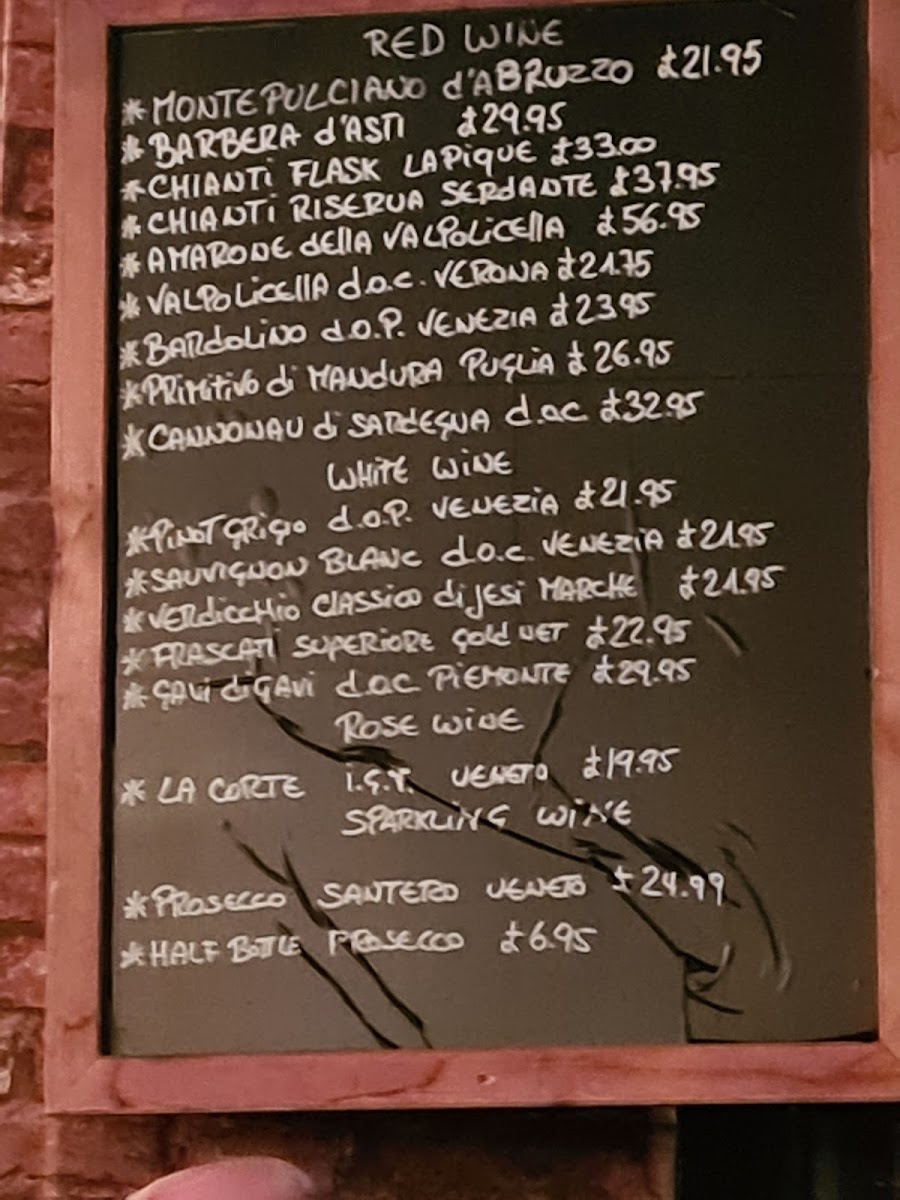 RED WINE
* MONTEPULCIANO d'ABRUZZO £21.95
* BARBERA d'ASTI £29.95
* CHIANTI FLASK LAPIQUE £33.00
* CHIANTI RISERVA SERDANTE £37.95
* AMARONE dELLA VALPOLICELLA £56.95
* VALPOLICELLA d.o.c. VERONA £21.75
* BARdOLINO d.O.P. VENEZIA £23.95
* PRIMITIVO di MANDURA PUGLIA £26.95
* CANNONAU di SARDEGNA d.o.c £32.95
WHITE WINE
* PINOT GRIGIO d.O.P. VENEZIA £21.95
* SAUVIGNON BLANC d.o.c. VENEZIA £21.95
* VERdICCHIO CLASSICO di JESI MARCHE £21.95
* FRASCATI SUPERIORE GOLD VET £22.95
* GAVI di GAVI d.o.c PIEMONTE £29.95
ROSE WINE
* LA CORTE I.G.T. VENETO £19.95
SPARKLING WINE
* PROSECCO SANTERO VENETO £24.99
* HALF BOTLE PROSECCO £6.95